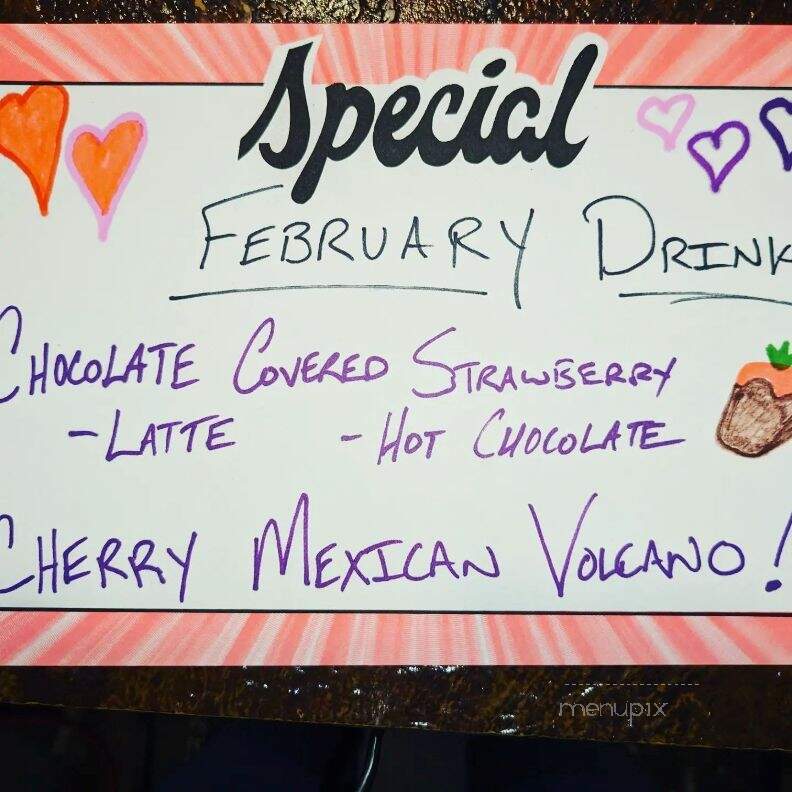 Special
FEBRUARY DRINK
CHOCOLATE COVERED STRAWBERRY
-LATTE -HOT CHOCOLATE
CHERRY MEXICAN VOLCANO!
menupix